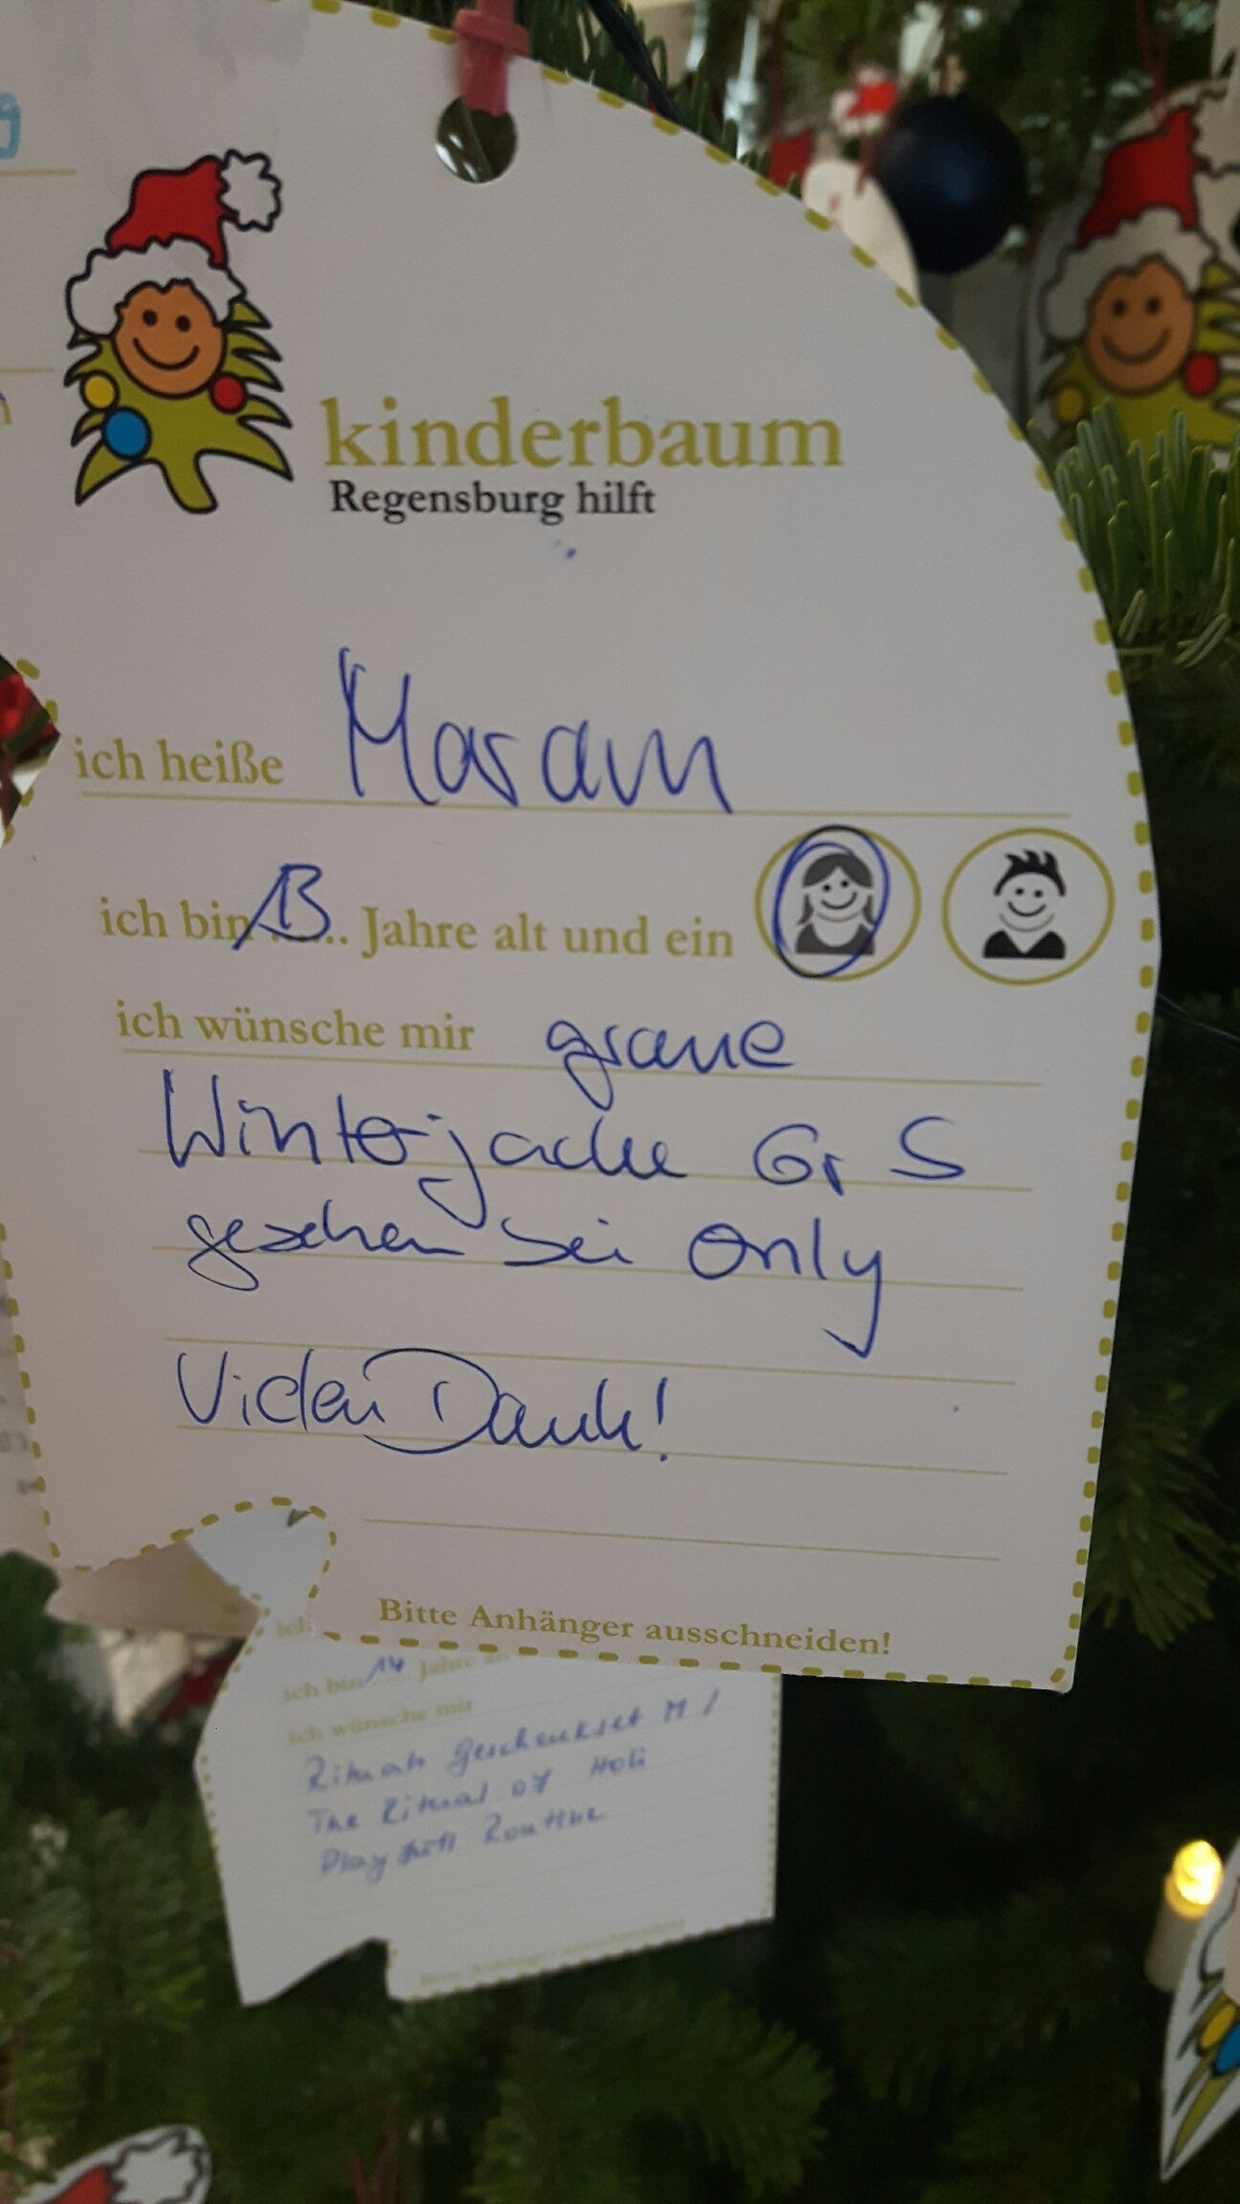 kinderbaum
Regensburg hilft
ich heiße Maram
ich bin 13 ... Jahre alt und ein
ich wünsche mir graue
Winterjacke Gr S
gesehen bei Only
Vielen Dank!
Bitte Anhänger ausschneiden!
ich
ich bin 14 Jahre
ich wünsche mir
Rituals Geschenkset M /
The Ritual of Holi
Play Routine